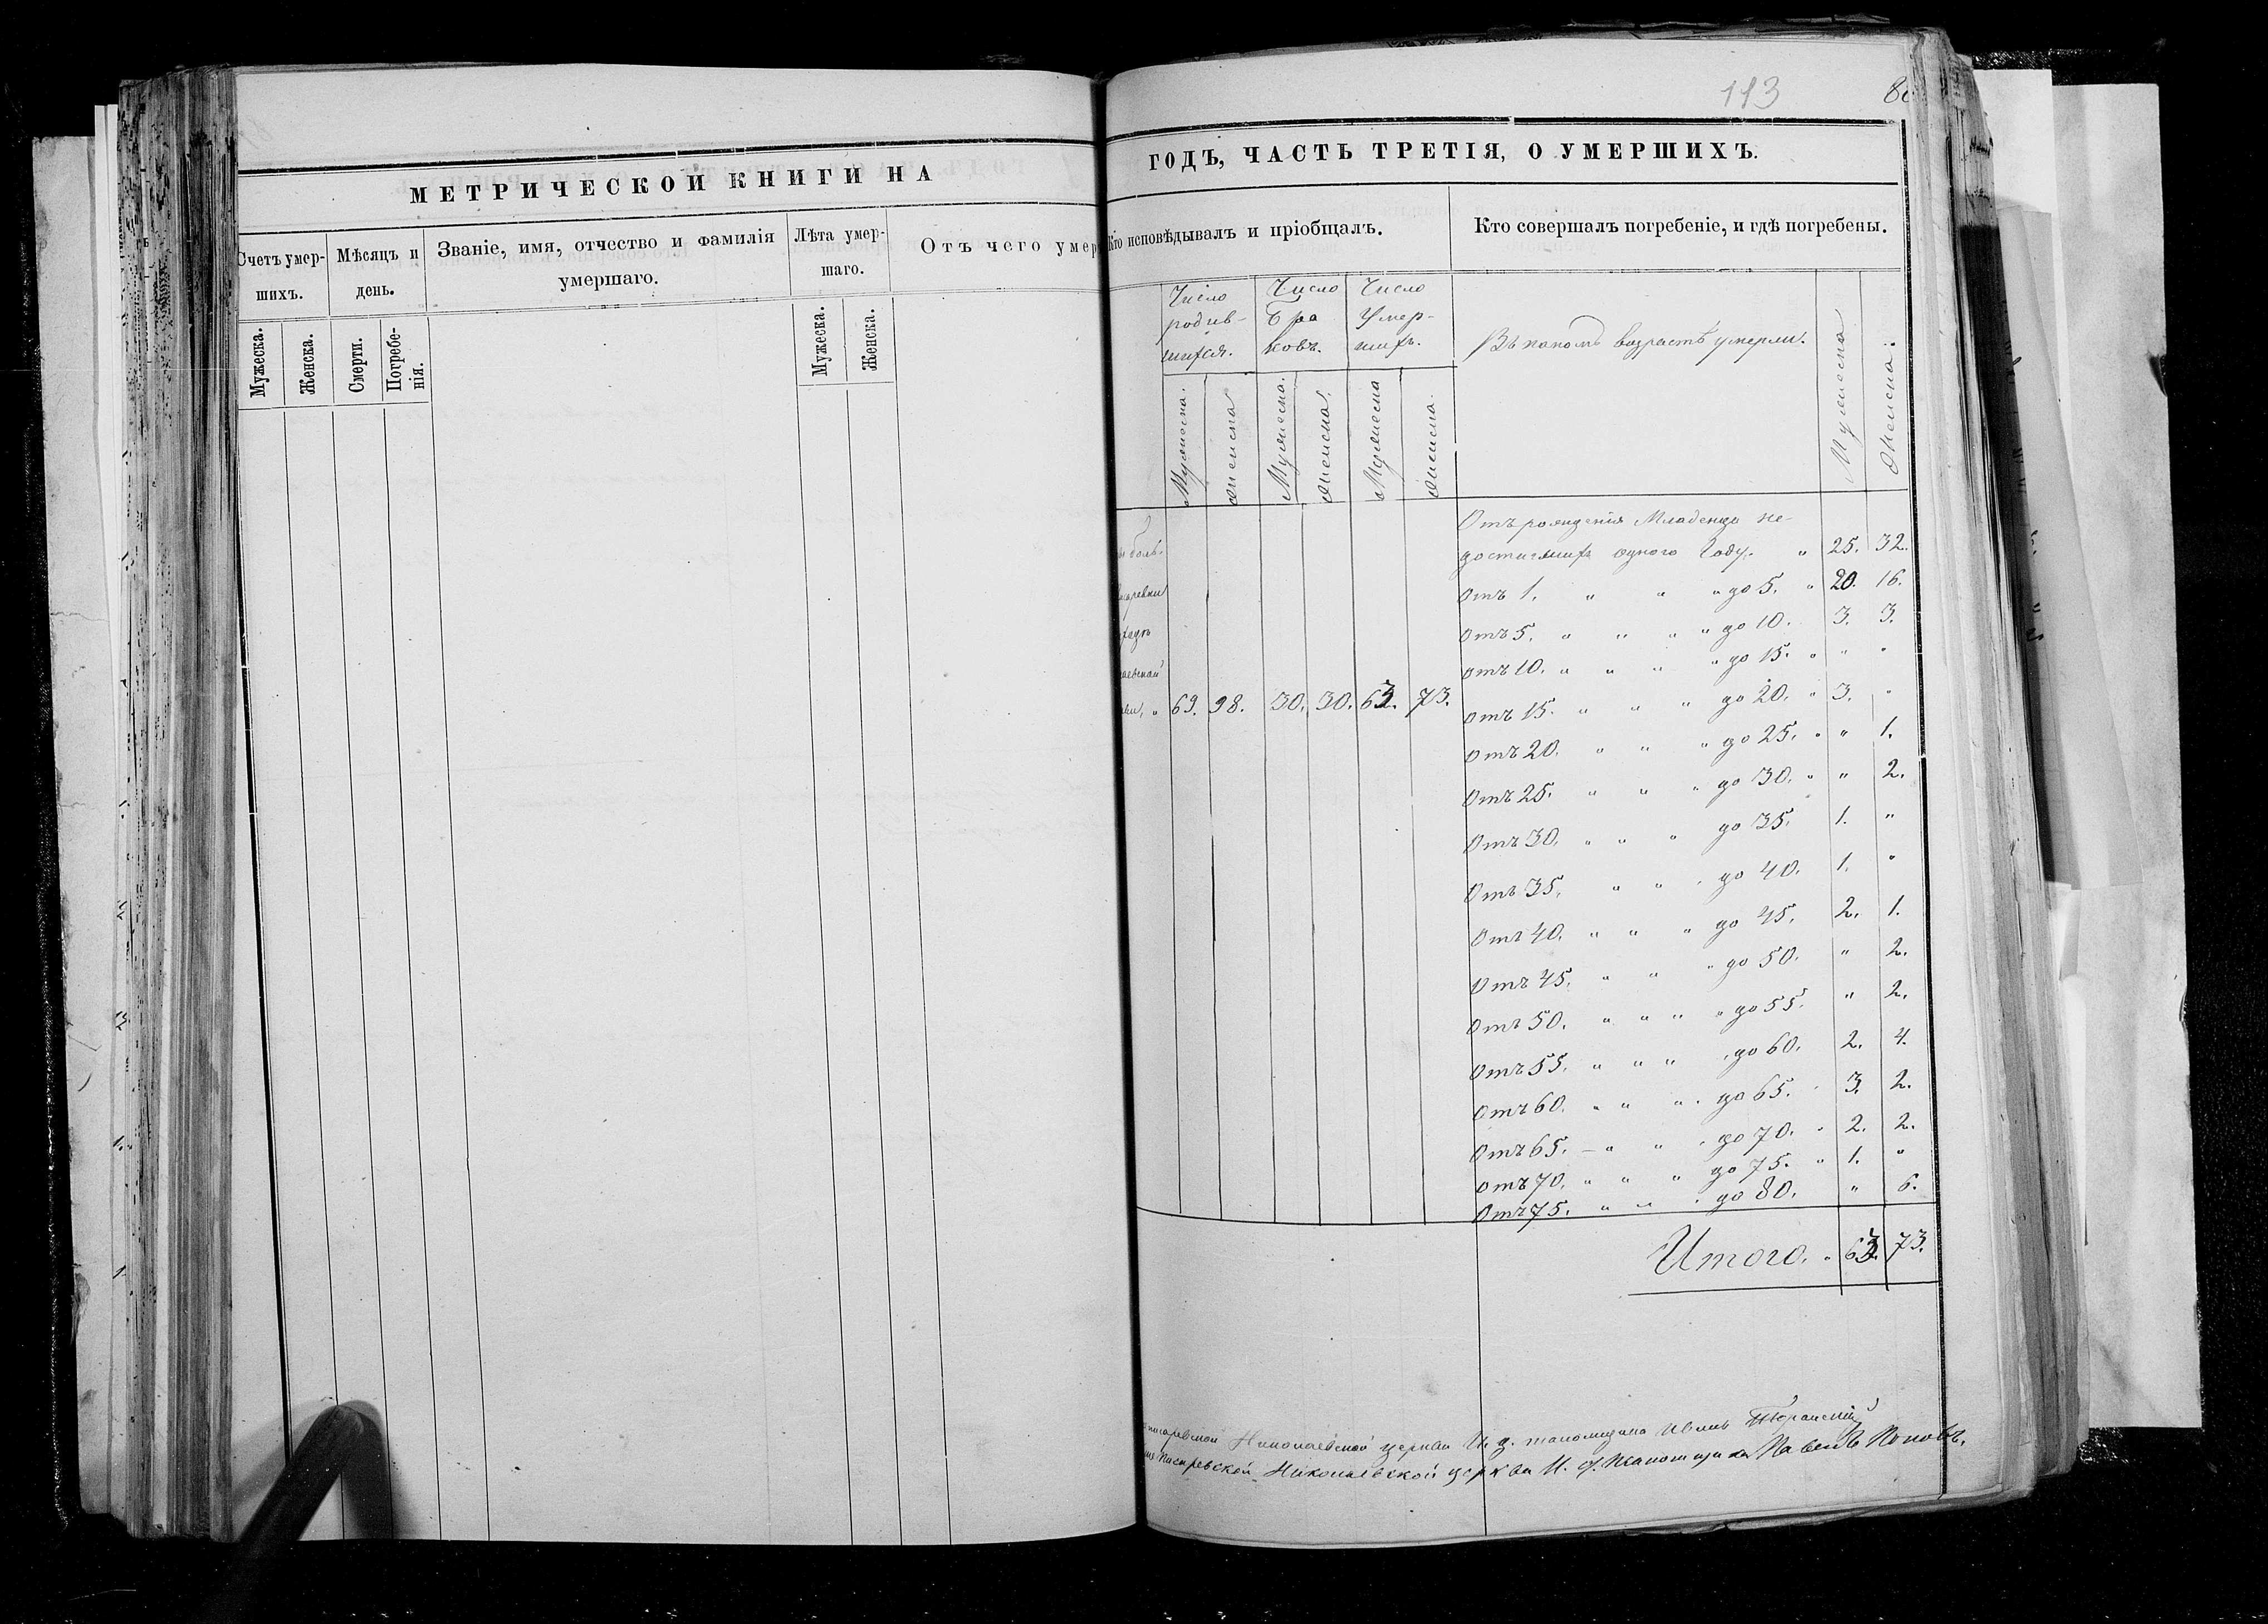 МЕТРИЧЕСКОЙ КНИГИ НА
Счетъ умер-
шихъ.
Мужеска.
Женска.
Мѣсяцъ и
день.
Смерти.
Погребе-
нія.
Званіе, имя, отчество и фамилія
умершаго.
Лѣта умер-
шаго.
Мужеска.
Женска.
Отъ чего умер
113
80
ГОДЪ, ЧАСТЬ ТРЕТІЯ, О УМЕРШИХЪ.
Кто исповѣдывалъ и пріобщалъ.
Кто совершалъ погребеніе, и гдѣ погребены.
Число
родив-
шихся.
Число
Бра
ковъ.
Число
Умер-
шихъ.
Въ какомъ возрастѣ умерли.
Мужеска
Женска.
Мужеска.
Женска
Мужеска.
Женска.
Мужеска
Женска.
69. 98. 30. 30. 63. 73.
Отъ рожденія Младенцы не-
достигшихъ одного Году. " 25. 32.
Отъ 1. " " " до 5. " 20. 16.
Отъ 5. " " " " до 10. 3. 3.
Отъ 10. " " " " до 15. " " "
Отъ 15. " " " до 20. " 3. "
Отъ 20. " " " до 25. " " 1.
Отъ 25. " " " до 30. " " 2.
Отъ 30. " " " до 35. 1. "
Отъ 35. " " " до 40. 1. "
Отъ 40. " " " до 45. 2. 1.
Отъ 45. " " " до 50. " 2.
Отъ 50. " " " " до 55. " 2.
Отъ 55. " " " " до 60. 2. 4.
Отъ 60. " " " " до 65. " 3. 2.
Отъ 65. " " " до 70. " 2. 2.
Отъ 70. " " " до 75. " 1. "
Отъ 75. " " " до 80. " 6.
Итого. " 63. 73.
Николаевской церкви И. д. псаломщика Иванъ
Писаревской Николаевской церкви И. д. Псаломщика Павелъ Поповъ.